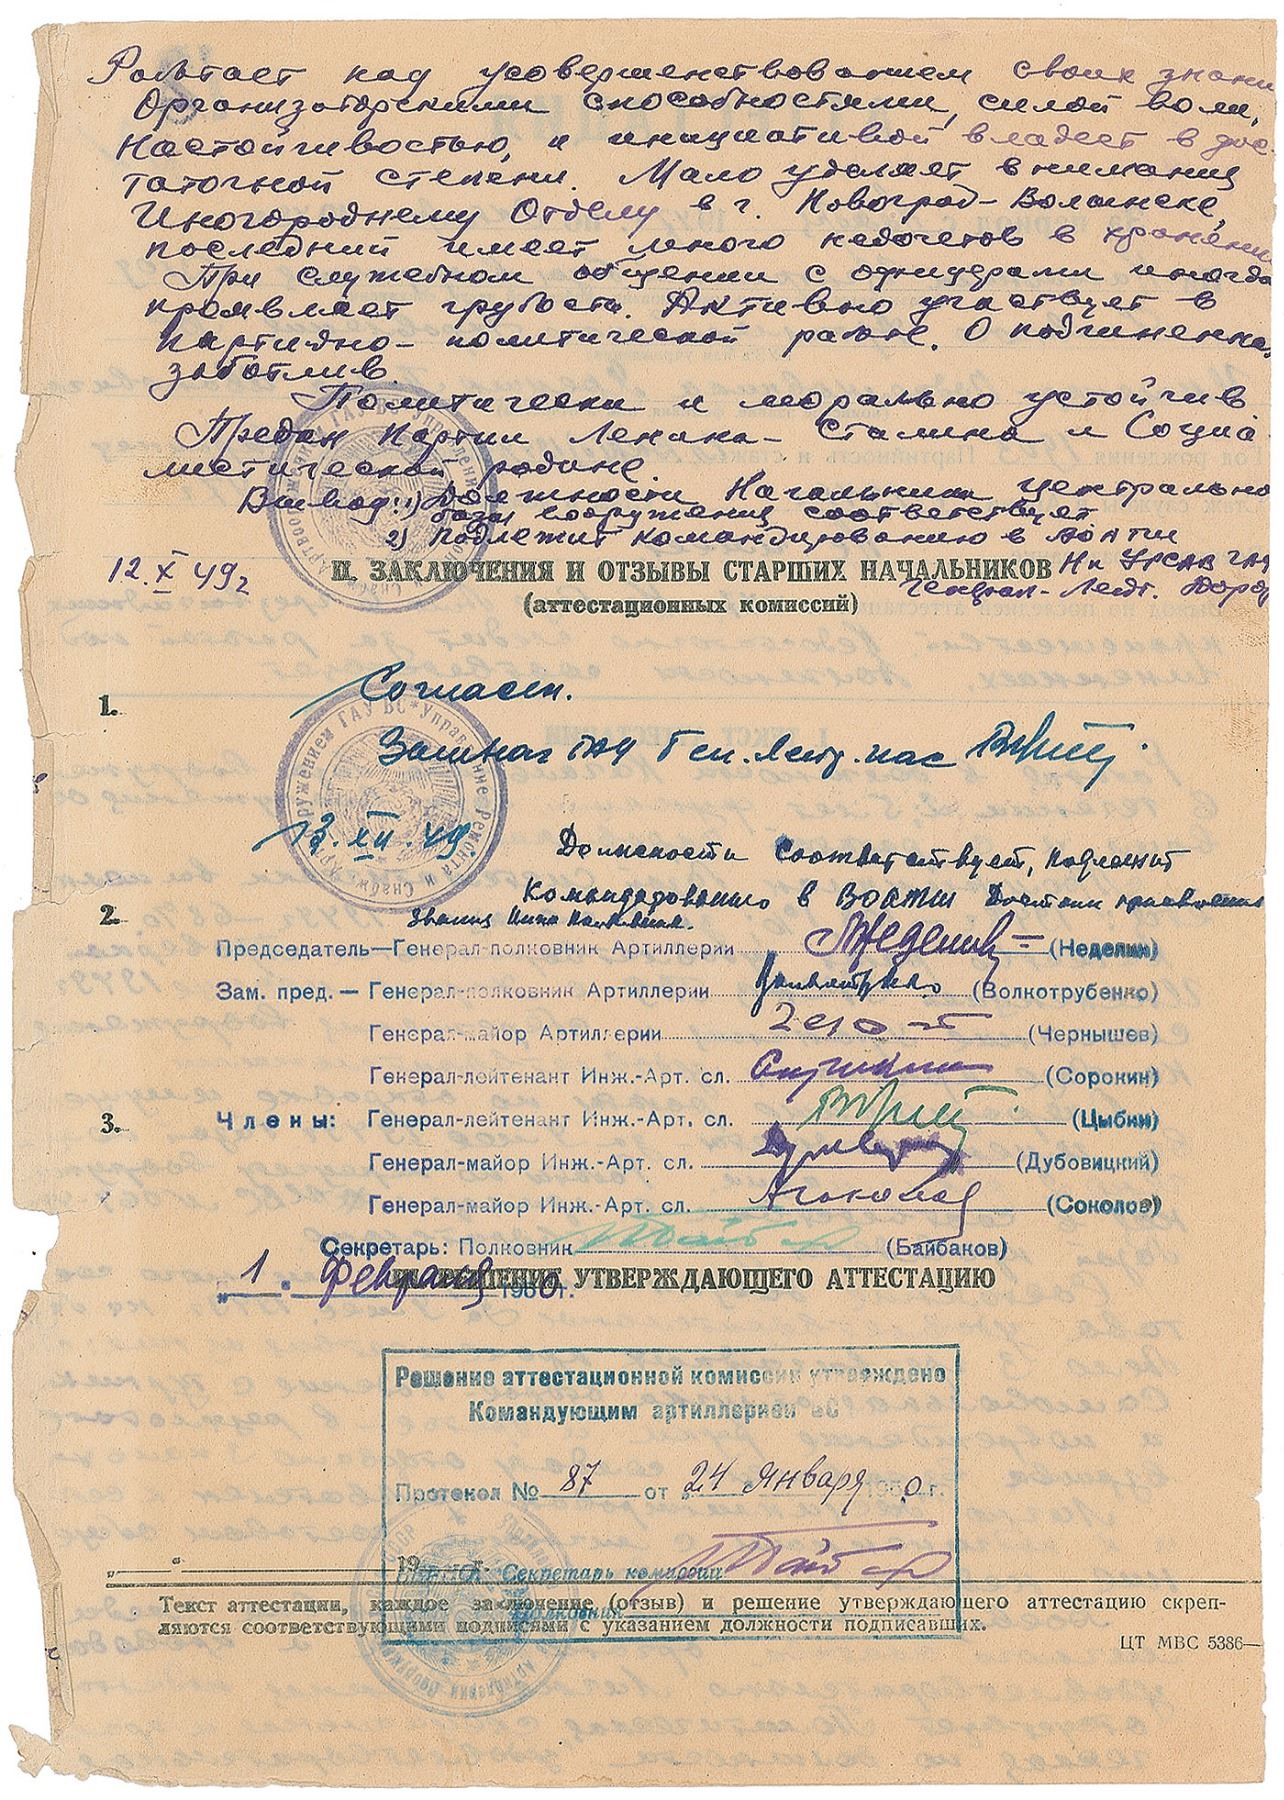 Работает над усовершенствованием своих знани
Организаторскими способностями, силой воли,
Настойчивостью, и инициативой владеет в дос-
таточной степени. Мало уделяет внимания
Иногороднему Отделу в г. Новоград-Волынске,
последний имеет много недочетов в хранении
При служебном общении с офицерами иногда
проявляет грубость. Активно участвует в
партийно-политической работе. О подчиненных
заботлив.
Политически и морально устойчив.
Предан Партии Ленина-Сталина и Социа
листической родине.
Вывод: 1) Должности Начальника центрально
базы вооружения соответствует
2) Подлежит командированию в
12.X 49г
II. ЗАКЛЮЧЕНИЯ И ОТЗЫВЫ СТАРШИХ НАЧАЛЬНИКОВ
(аттестационных комиссий)
Генерал-Лейт.
1.
Согласен.
ГАУ Ген. Лейт.
13.XII.49.
Должности соответствует, подлежит
2.
командированию в Достоин присвоения
звания
Председатель—Генерал-полковник Артиллерии (Неделин)
Зам. пред. — Генерал-полковник Артиллерии (Волкотрубенко)
Генерал-майор Артиллерии (Чернышев)
Генерал-лейтенант Инж.-Арт. сл. (Сорокин)
3. Члены: Генерал-лейтенант Инж.-Арт. сл. (Цыбин)
Генерал-майор Инж.-Арт. сл. (Дубовицкий)
Генерал-майор Инж.-Арт. сл. (Соколов)
Секретарь: Полковник (Байбаков)
„1" Февраля 1950г.
РЕШЕНИЕ УТВЕРЖДАЮЩЕГО АТТЕСТАЦИЮ
Решение аттестационной комиссии утверждено
Командующим артиллерией ВС
Протокол № 87 от „24 Января 1950г.
„ " 19 г. Секретарь комиссии
Полковник
Текст аттестации, каждое заключение (отзыв) и решение утверждающего аттестацию скреп-
ляются соответствующими подписями с указанием должности подписавших.
ЦТ МВС 5386—